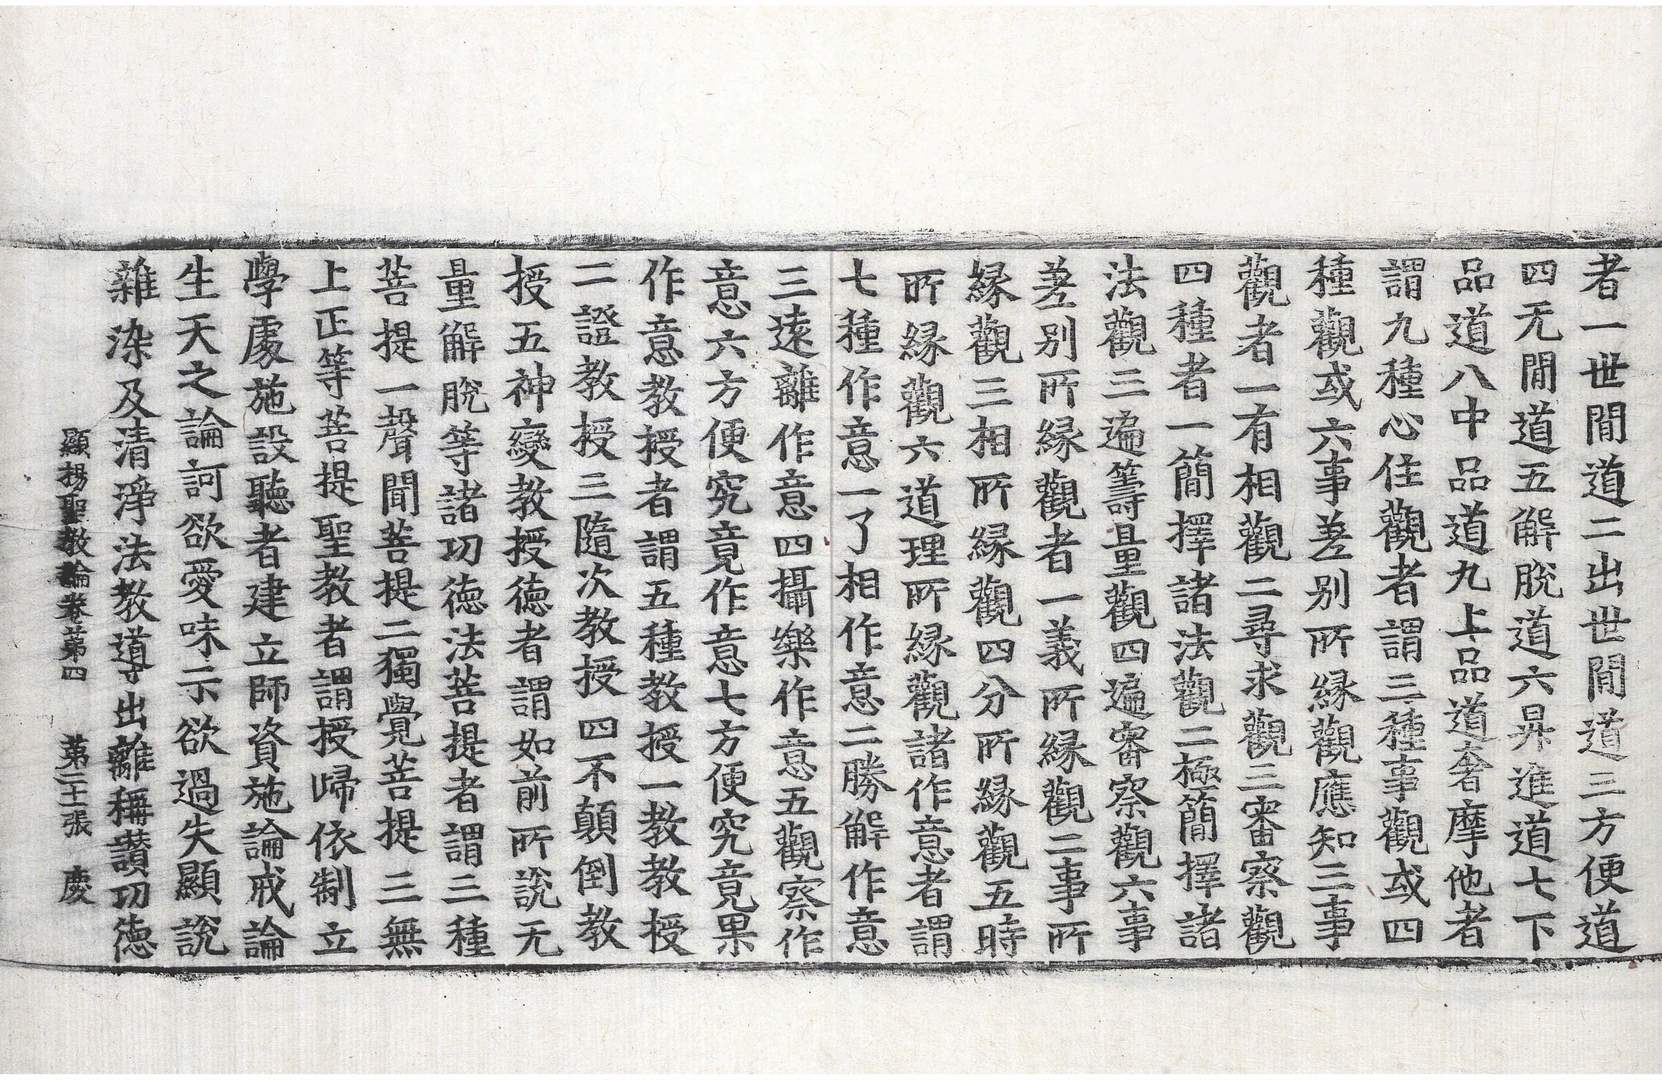 者一世閒道二出世閒道三方便道
四无閒道五解脫道六昇進道七下
品道八中品道九上品道奢摩他者
謂九種心住觀者謂三種事觀或四
種觀或六事差别所縁觀應知三事
觀者一有相觀二尋求觀三審察觀
四種者一簡擇諸法觀二極簡擇諸
法觀三遍籌量觀四遍審察觀六事
差别所縁觀者一義所縁觀二事所
縁觀三相所縁觀四分所縁觀五時
所縁觀六道理所縁觀諸作意者謂
七種作意一了相作意二勝解作意
三遠離作意四攝樂作意五觀察作
意六方便究竟作意七方便究竟果
作意教授者謂五種教授一教教授
二證教授三隨次教授四不顛倒教
授五神變教授德者謂如前所說无
量解脫等諸功德法菩提者謂三種
菩提一聲聞菩提二獨覺菩提三無
上正等菩提聖教者謂授歸依制立
學處施設聽者建立師資施論戒論
生天之論訶欲愛味示欲過失顯說
雜染及清淨法教導出離稱讃功德
顯揚聖教論卷第四 第二十張 慶